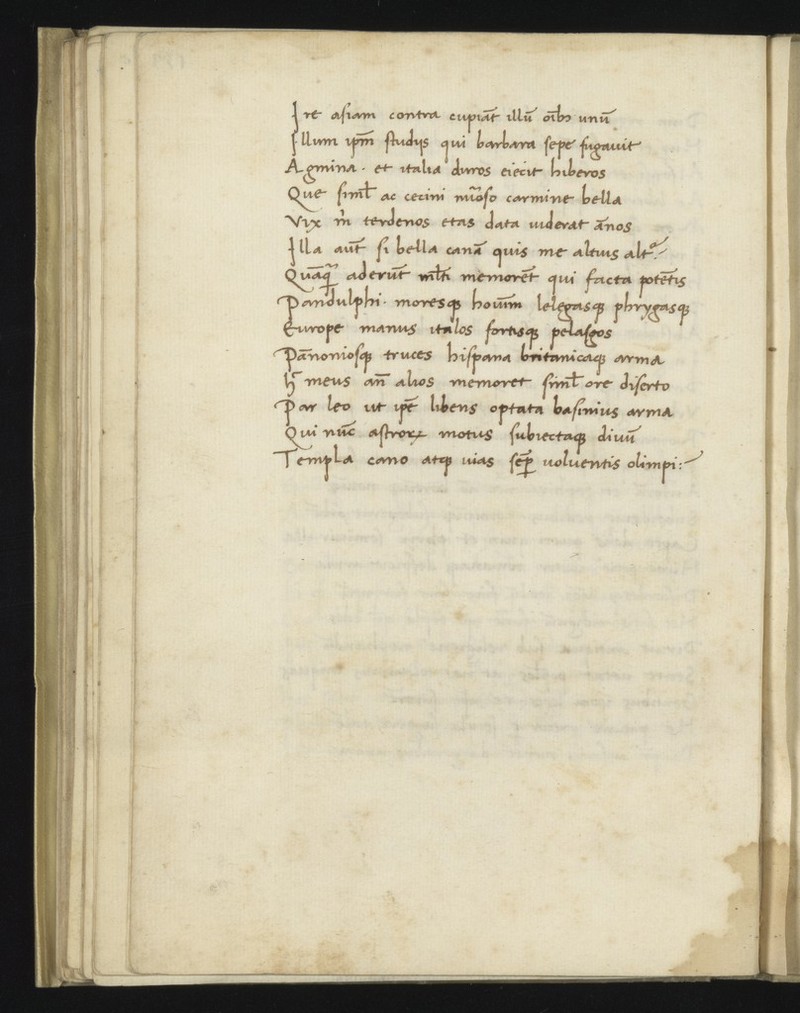 Ire asiam contra cupiāt illū oība unū
Illum ip̄m studijs qui barbara sepe fugauit
Agmina · et italia duros eiecit hiberos
Que siml̄ ac cecini nūoso carmine bella
Vix m̄ terdenos etas data uiderat ānos
Illa aūt si bella canā quis me altius alt
Quāq̄ aderūt ml̄ti memorēt qui facta potētis
Pandulphi · moresq houm̄ lelegasq phrygasq
Europe manus italos fortisq pelasgos
Pānoniosq truces hispana britanicaq arma
meus an̄ alios memoret siml̄ ore diserto
Par leo ut ip̄e libens optata basinius arma
Qui nūc astroꝝ motus subiectaq diuū
Templa cano atq uias sēꝑ uoluentis olimpi :~